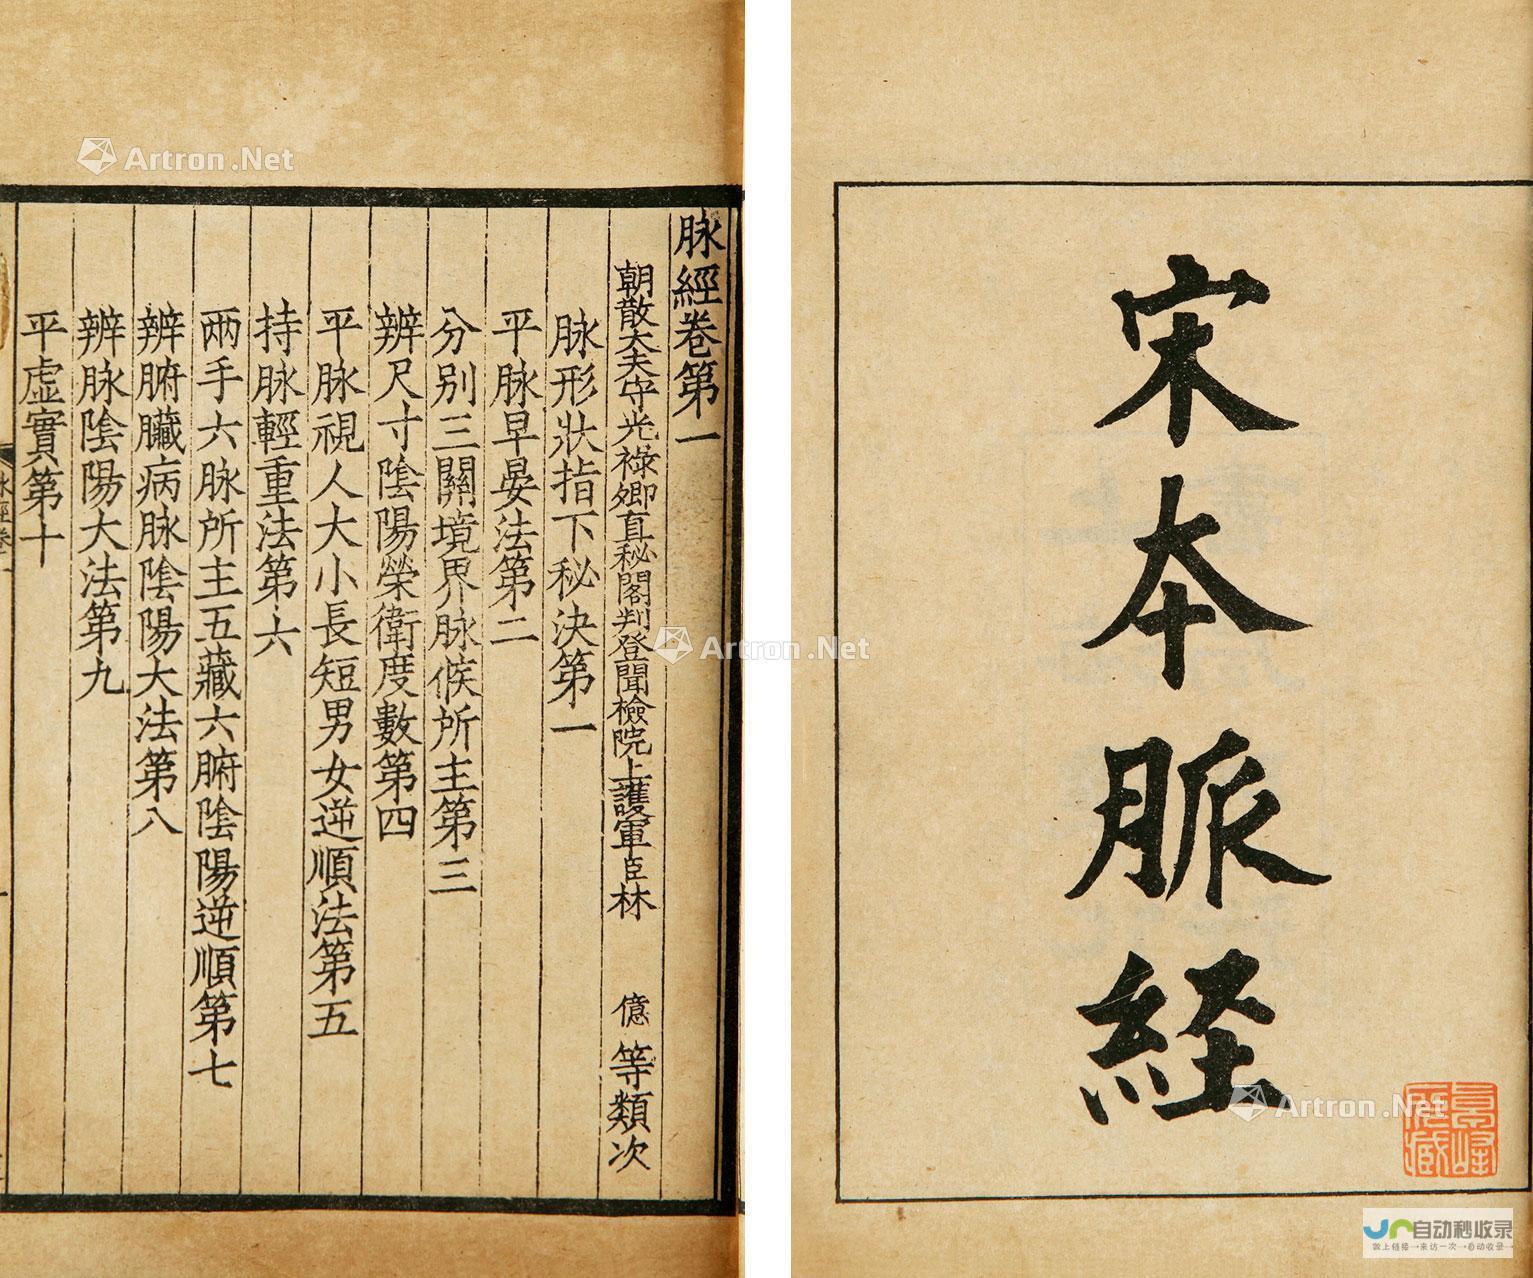 宋本脈経
脉經卷第一
朝散大夫守光祿卿直秘閣判登聞檢院上護軍臣林 億 等類次
脉形狀指下秘決第一
平脉早晏法第二
分别三關境界脉候所主第三
辨尺寸陰陽榮衛度數第四
平脉視人大小長短男女逆順法第五
持脉輕重法第六
兩手六脉所主五藏六腑陰陽逆順第七
辨腑臟病脉陰陽大法第八
辨脉陰陽大法第九
平虛實第十
Artron.Net
Artron.Net
Artron.Net
自动秒收录
做上链接→来访一次→自动收录→